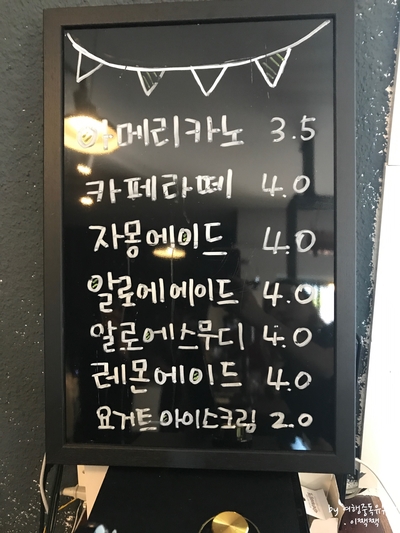 아메리카노 3.5
카페라떼 4.0
자몽에이드 4.0
알로에에이드 4.0
알로에스무디 4.0
레몬에이드 4.0
요거트아이스크림 2.0
by 여행중독유
. 이짹짹